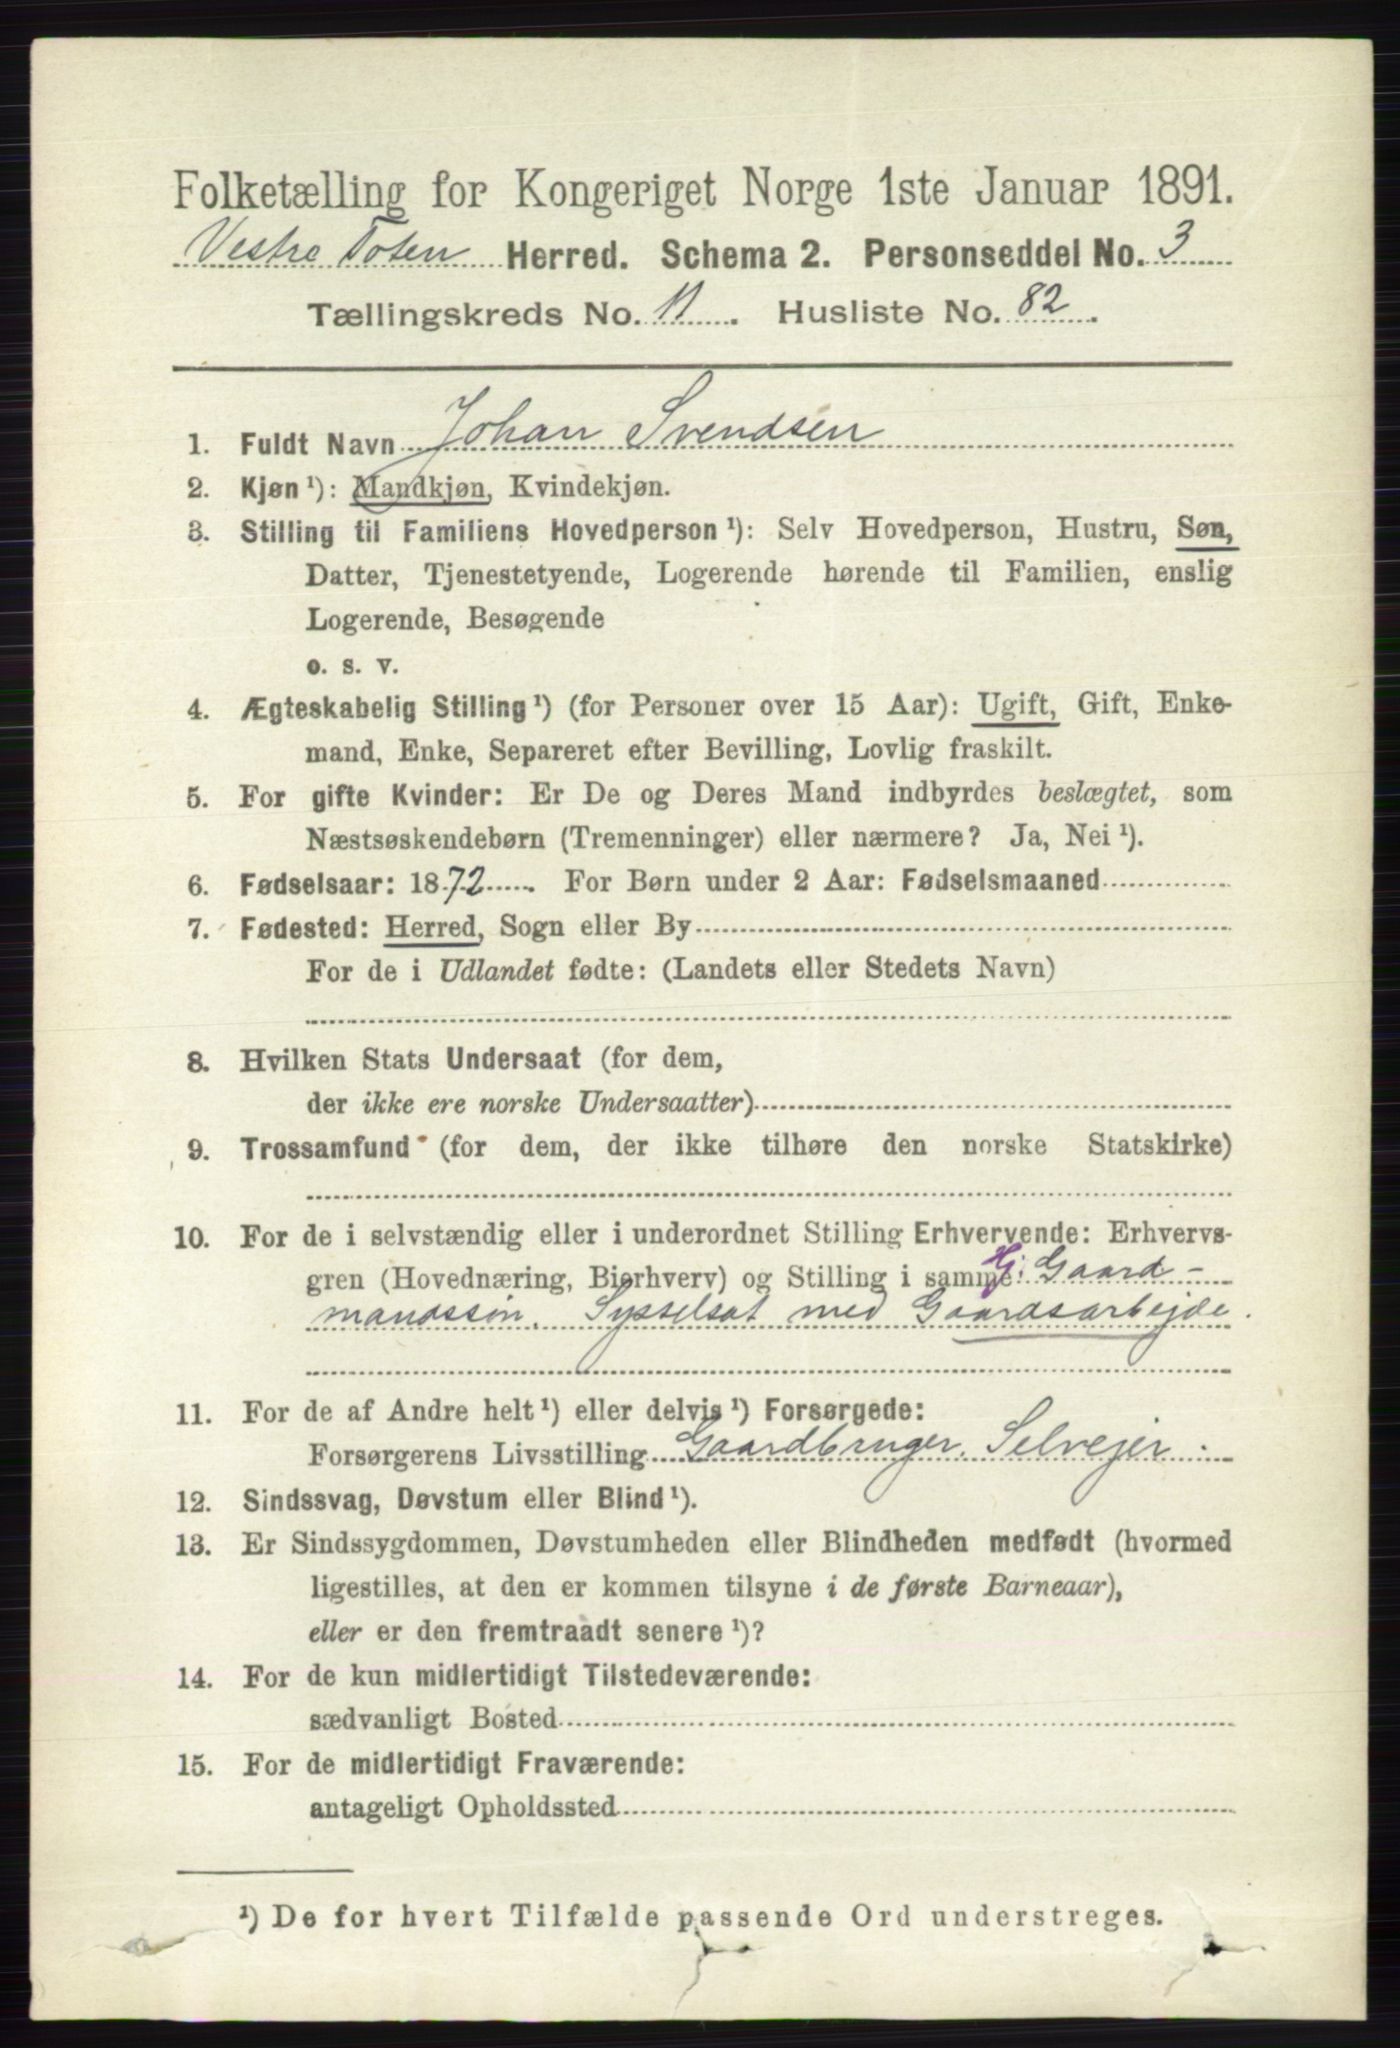 Folketælling for Kongeriget Norge 1ste Januar 1891.
Vestre Toten Herred. Schema 2. Personseddel No. 3
Tællingskreds No. 11. Husliste No. 82.
1. Fuldt Navn Johan Svendsen
2. Kjøn¹): Mandkjøn, Kvindekjøn.
3. Stilling til Familiens Hovedperson¹): Selv Hovedperson, Hustru, Søn,
Datter, Tjenestetyende, Logerende hørende til Familien, enslig
Logerende, Besøgende
o. s. v.
4. Ægteskabelig Stilling¹) (for Personer over 15 Aar): Ugift, Gift, Enke-
mand, Enke, Separeret efter Bevilling, Lovlig fraskilt.
5. For gifte Kvinder: Er De og Deres Mand indbyrdes beslægtet, som
Næstsøskendebørn (Tremenninger) eller nærmere? Ja, Nei¹).
6. Fødselsaar: 1872. For Børn under 2 Aar: Fødselsmaaned
7. Fødested: Herred, Sogn eller By
For de i Udlandet fødte: (Landets eller Stedets Navn)
8. Hvilken Stats Undersaat (for dem,
der ikke ere norske Undersaatter)
9. Trossamfund (for dem, der ikke tilhøre den norske Statskirke)
10. For de i selvstændig eller i underordnet Stilling Erhvervende: Erhvervs-
gren (Hovednæring, Bierhverv) og Stilling i samme Hj. Gaard-
mandssøn. Sysselsat med Gaardsarbejde.
11. For de af Andre helt¹) eller delvis¹) Forsørgede:
Forsørgerens Livsstilling Gaardbruger. Selvejer.
12. Sindssvag, Døvstum eller Blind¹).
13. Er Sindssygdommen, Døvstumheden eller Blindheden medfødt (hvormed
ligestilles, at den er kommen tilsyne i de første Barneaar),
eller er den fremtraadt senere¹)?
14. For de kun midlertidigt Tilstedeværende:
sædvanligt Bosted
15. For de midlertidigt Fraværende:
antageligt Opholdssted
¹) De for hvert Tilfælde passende Ord understreges.